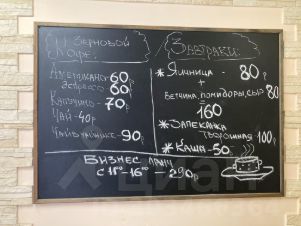 Зерновой
Кофе:
Американо 60
эспрессо 80р
Капучино - 70р
Чай - 40р
Чайбинижске - 90р
Завтраки:
* Яичница - 80р
+
Ветчина, помидоры, сыр 80
160
* Запеканка
творожная - 100р
* Каша - 50р
Бизнес ланч
с 11⁰⁰ - 16⁰⁰ - 290р
циан